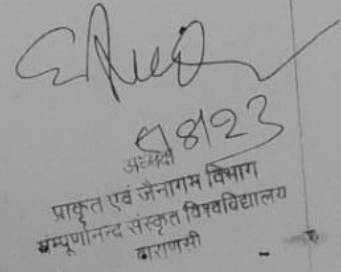 8/23
अध्यक्ष
प्राकृत एवं जैनागम विभाग
सम्पूर्णानन्द संस्कृत विश्वविद्यालय
वाराणसी